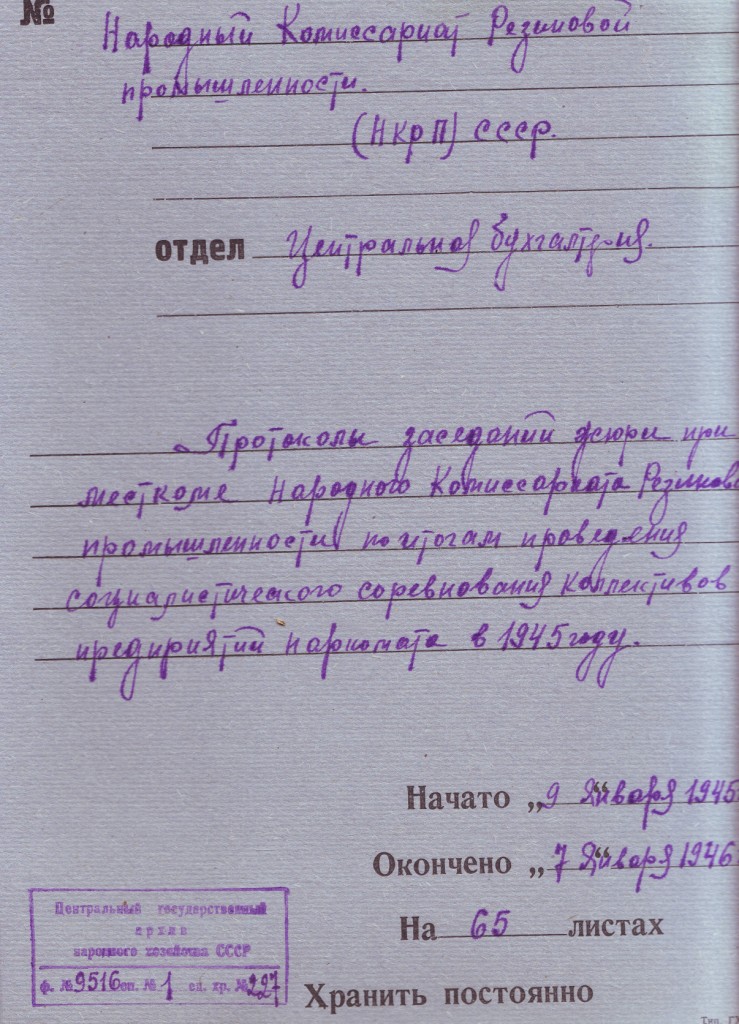 №
Народный Комиссариат Резиновой
промышленности.
(НКРП) СССР.
отдел Центральная бухгалтерия.
Протоколы заседаний жюри при
месткоме Народного Комиссариата Резинов
промышленности по итогам проведения
социалистического соревнования коллективов
предприятий наркомата в 1945 году.
Начато „9“ Января 1945
Окончено „7“ Января 1946
На 65 листах
Центральный государственный
архив
народного хозяйства СССР
ф. № 9516 оп. № 1 ед. хр. № 227
Хранить постоянно
Тип.